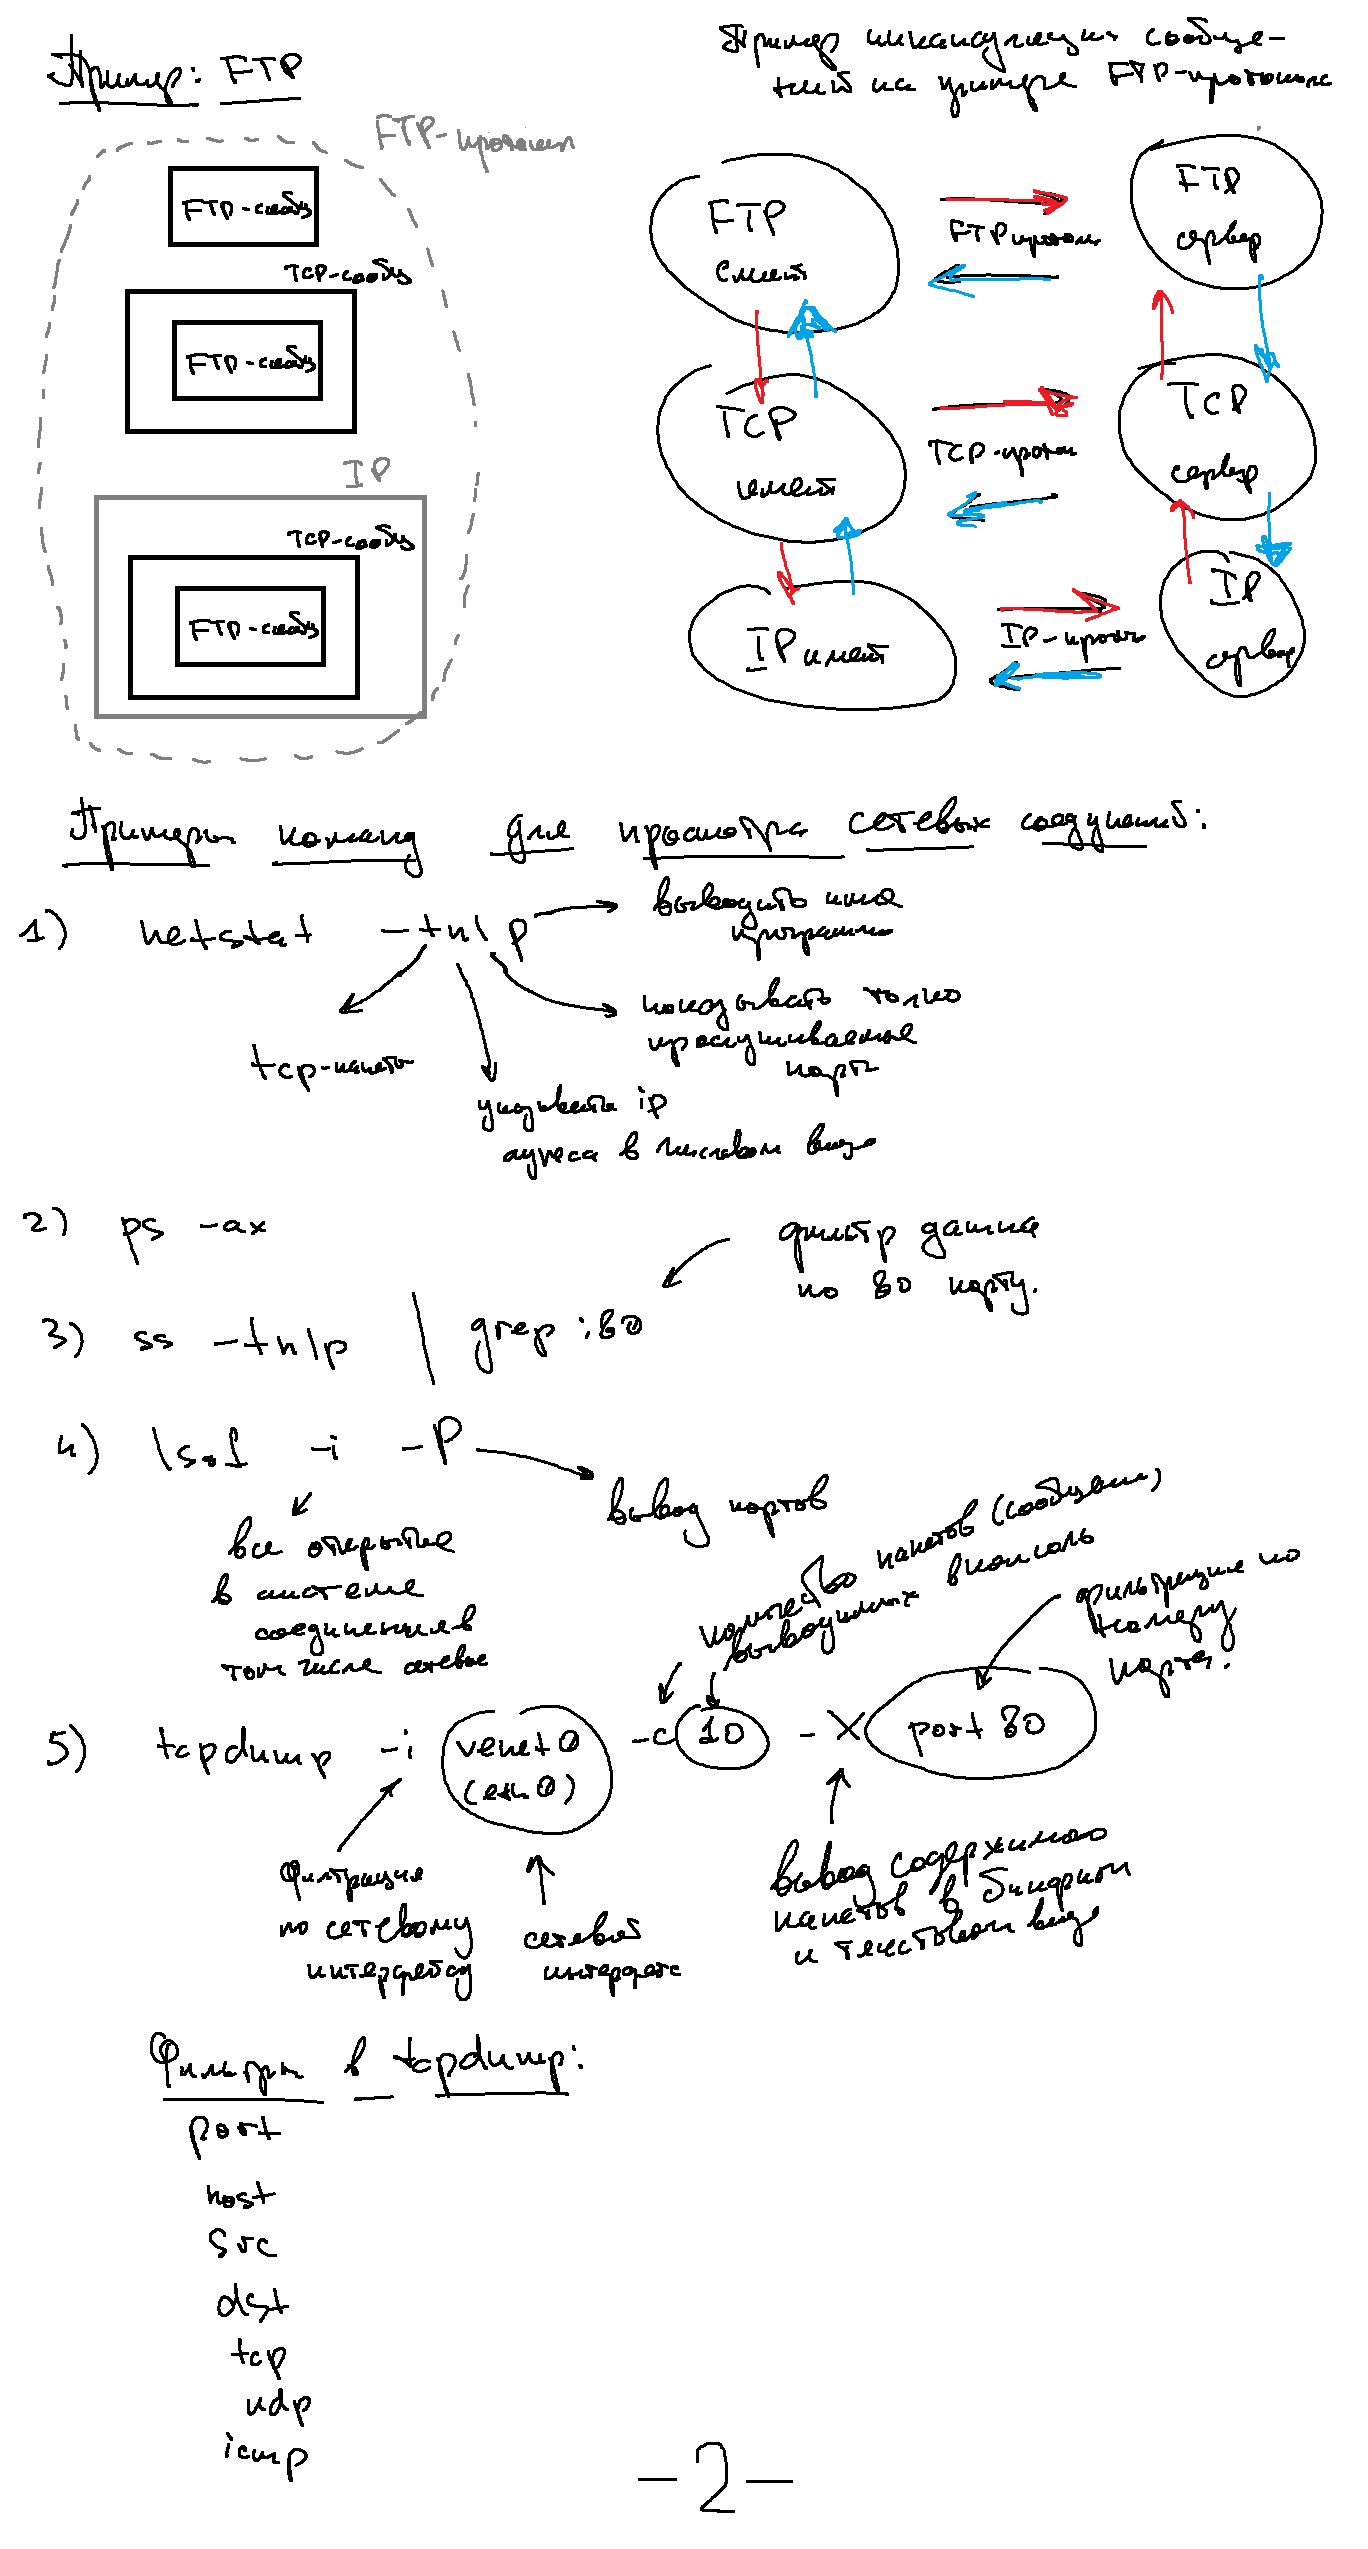 Пример: FTP
FTP-протокол
FTP-сообщ
TCP-сообщ
FTP-сообщ
IP
TCP-сообщ
FTP-сообщ
Пример инкапсуляции сообще-
ний на примере FTP-протокола
FTP
клиент
FTP протокол
FTP
сервер
TCP
клиент
TCP-проток
TCP
сервер
IP клиент
IP-проток
IP
сервер
Примеры команд для просмотра сетевых соединений:
1) netstat -tnlp
выводить имя
программы
показывать только
прослушиваемые
порты
tcp-пакеты
указывать ip
адреса в числовом виде
2) ps -ax
фильтр данных
по 80 порту.
3) ss -tnlp | grep :80
4) lsof -i -P
вывод портов
все открытые
в системе
соединения в
том числе сетевые
количество пакетов (сообщений)
выводимых в консоль
фильтрация по
номеру
порта.
5) tcpdump -i venet0 -c 10 -X port 80
(eth0)
фильтрация
по сетевому
интерфейсу
сетевой
интерфейс
вывод содержимого
пакетов в бинарном
и текстовом виде
Фильтры в tcpdump:
port
host
src
dst
tcp
udp
icmp
-2-